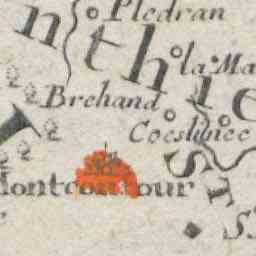 Pledran
nthie
la Ma
Brehand
Coeslinec
Montcontour
ST
S